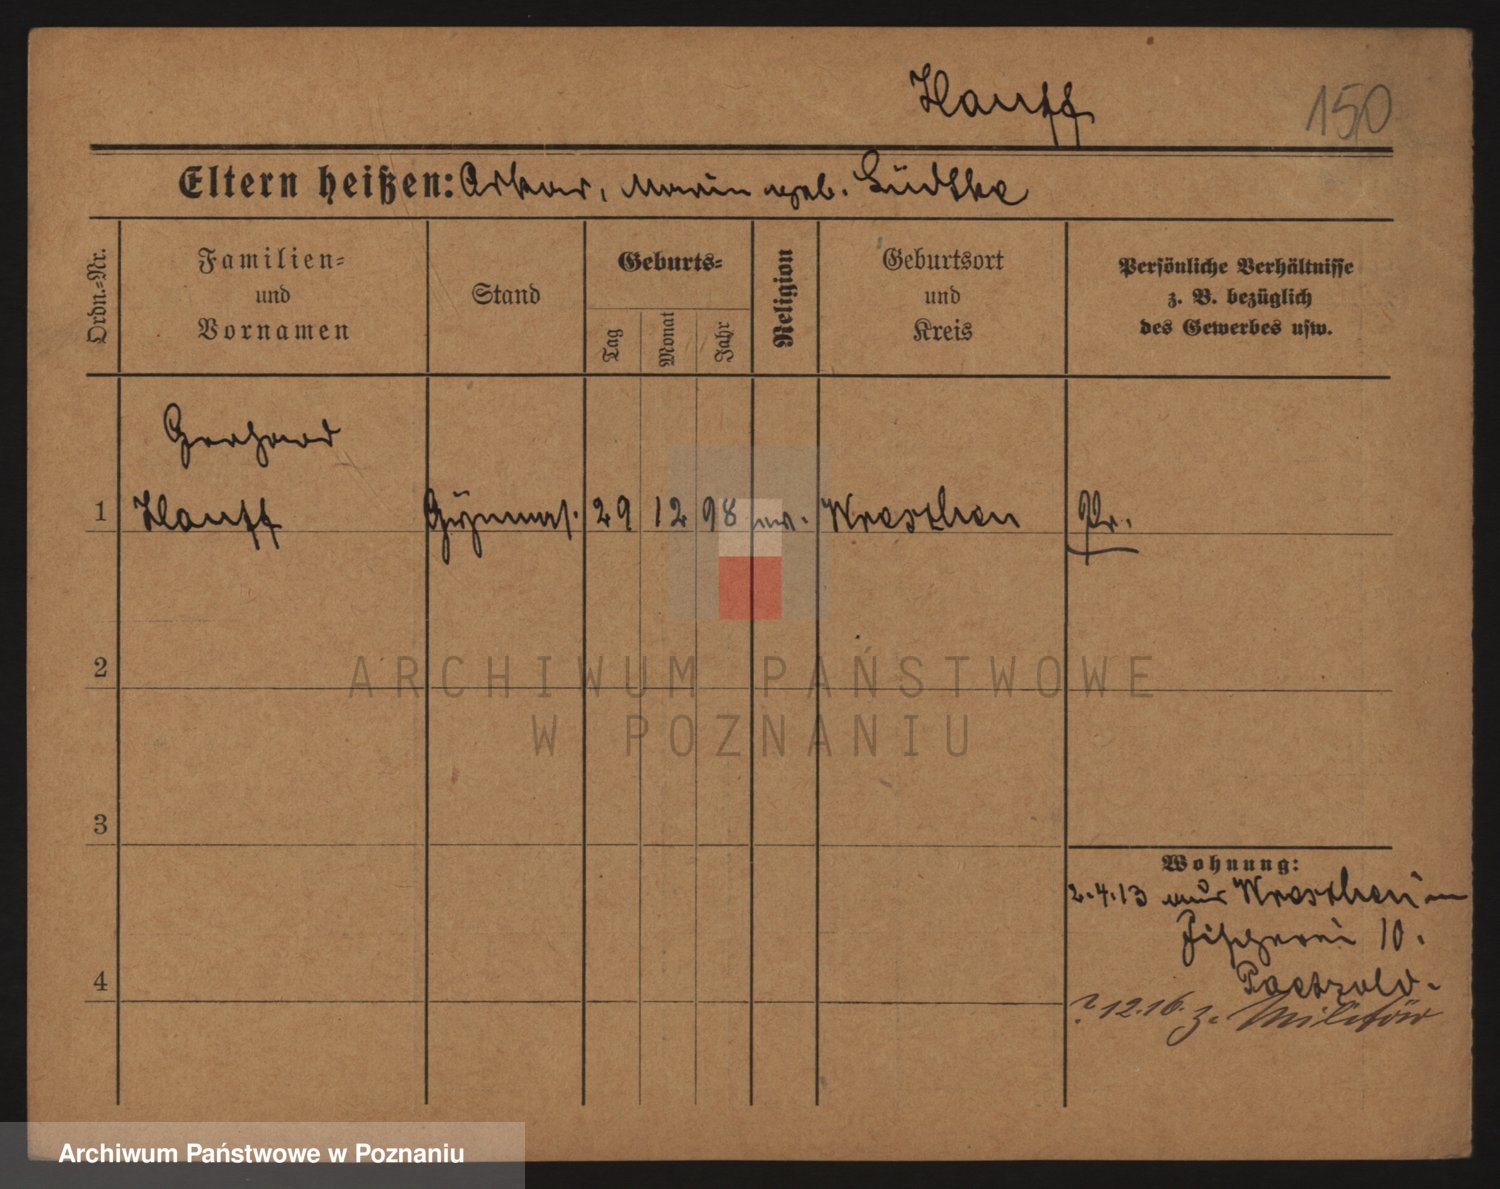 Hauff
150
Eltern heißen: Oskar, Marie geb. Lüdtke
Ordn.-Nr.
Familien-
und
Vornamen
Stand
Geburts-
Tag
Monat
Jahr
Religion
Geburtsort
und
Kreis
Persönliche Verhältnisse
z. B. bezüglich
des Gewerbes usw.
Gerhard
1 Hauff Gymnas. 29 12 98 ev. Wreschen Pr.
2
ARCHIWUM PAŃSTWOWE
W POZNANIU
3
Wohnung:
2.4.13 aus Wreschen
Fischerei 10.
Paetzold.
4
?.12.16. z. Militär
Archiwum Państwowe w Poznaniu